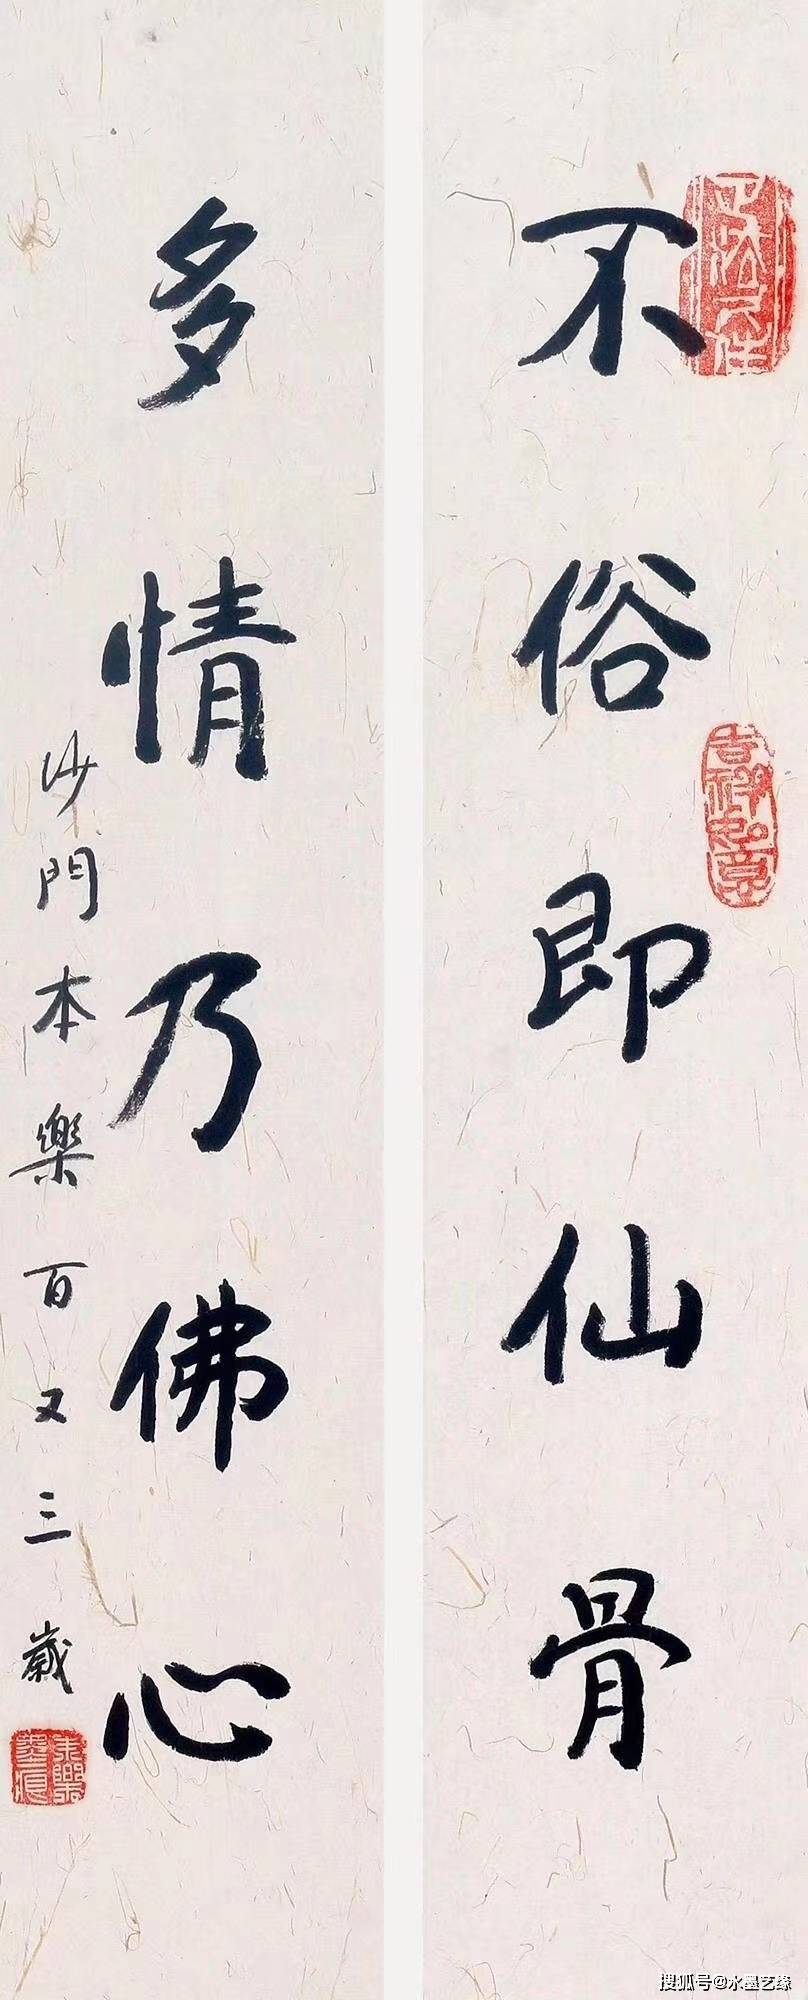 不俗即仙骨
多情乃佛心
沙門本樂百又三歲
搜狐号@水墨艺缘